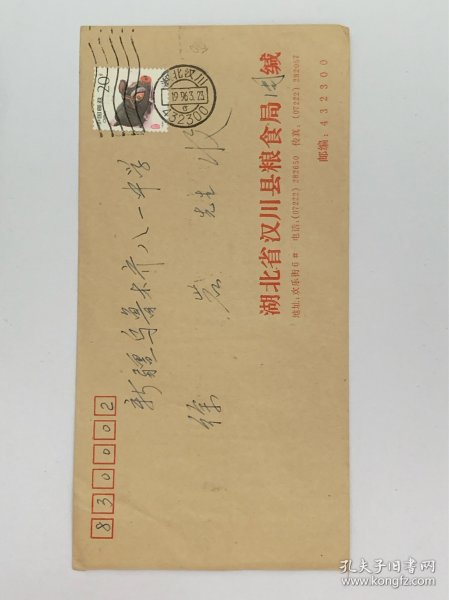 830002
新疆乌鲁木齐八一中学
徐 岩 先生 收
湖北省汉川县粮食局 缄
地址:欢乐街6# 电话:(07222) 282650 传真:(07222) 282057
邮编:432300
20分
中国邮政
湖北汉川
1996.3.23
432300
孔夫子旧书网
www.kongfz.com